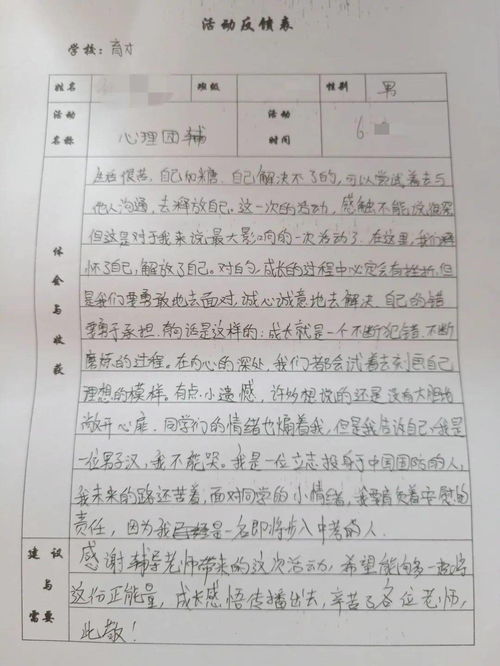 活动反馈表
学校：育才
姓名 班级 性别 男
活动名称 心理团辅 活动时间 6
体会与收获
生活很苦，自己加糖，自己解决不了的，可以尝试着去与
他人沟通，去释放自己。这一次的活动，感触不能说很深
但这是对于我来说最大影响的一次活动了。在这里，我们释
怀了自己，解放了自己。对的，成长的过程中必定会有挫折，但
是我们要勇敢地去面对，诚心诚意地去解决，自己的错
要勇于承担，有句话是这样的：成长就是一个不断犯错，不断
磨炼的过程。在内心的深处，我们都会试着去刻画自己
理想的模样。有点小遗憾，许多想说的还是没有大胆地
敞开心扉，同学们的情绪也煽着我，但是我告诉自己，我是
一位男子汉，我不能哭。我是一位立志投身于中国国防的人，
我未来的路还苦着，面对同学的小情绪，我要肩负着安慰的
责任，因为我是一名即将步入中考的人.
建议与需要
感谢辅导老师带来的这次活动，希望能向多一起将
这份正能量，成长感悟传播出去，辛苦了各位老师，
此敬！